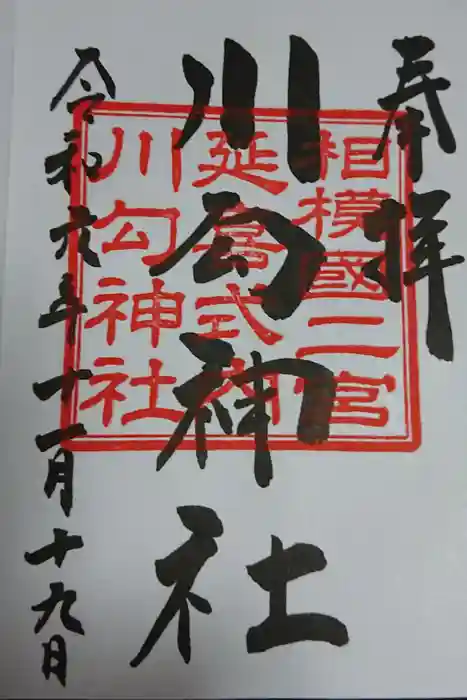 奉拝
川勾神社
令和六年十一月十九日
相模國二宮
延喜式内
川勾神社